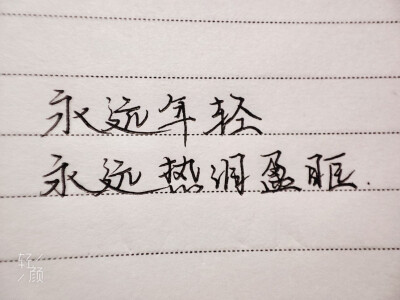 永远年轻
永远热泪盈眶.
好
颜